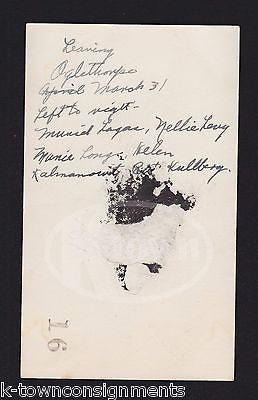 Leaving
Oglethorpe
April March 31
Left to right -
Muriel Logas, Nellie Levy
Marie Longo, Helen
Kalmanowitz, Pat Kullberg.
16
k-townconsignments